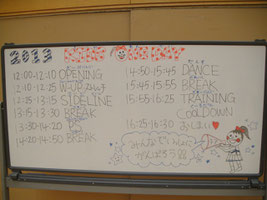 2013 DAY
12:00-12:10 OPENING
12:10-12:25 W-UP
12:25-13:15 SIDELINE
13:15-13:30 BREAK
13:30-14:20
14:20-14:50 BREAK
14:50-15:45 DANCE
15:45-15:55 BREAK
15:55-16:25 TRAINING
COOLDOWN
16:25-16:30 おしまい
みんなでいっしょに
がんばろう